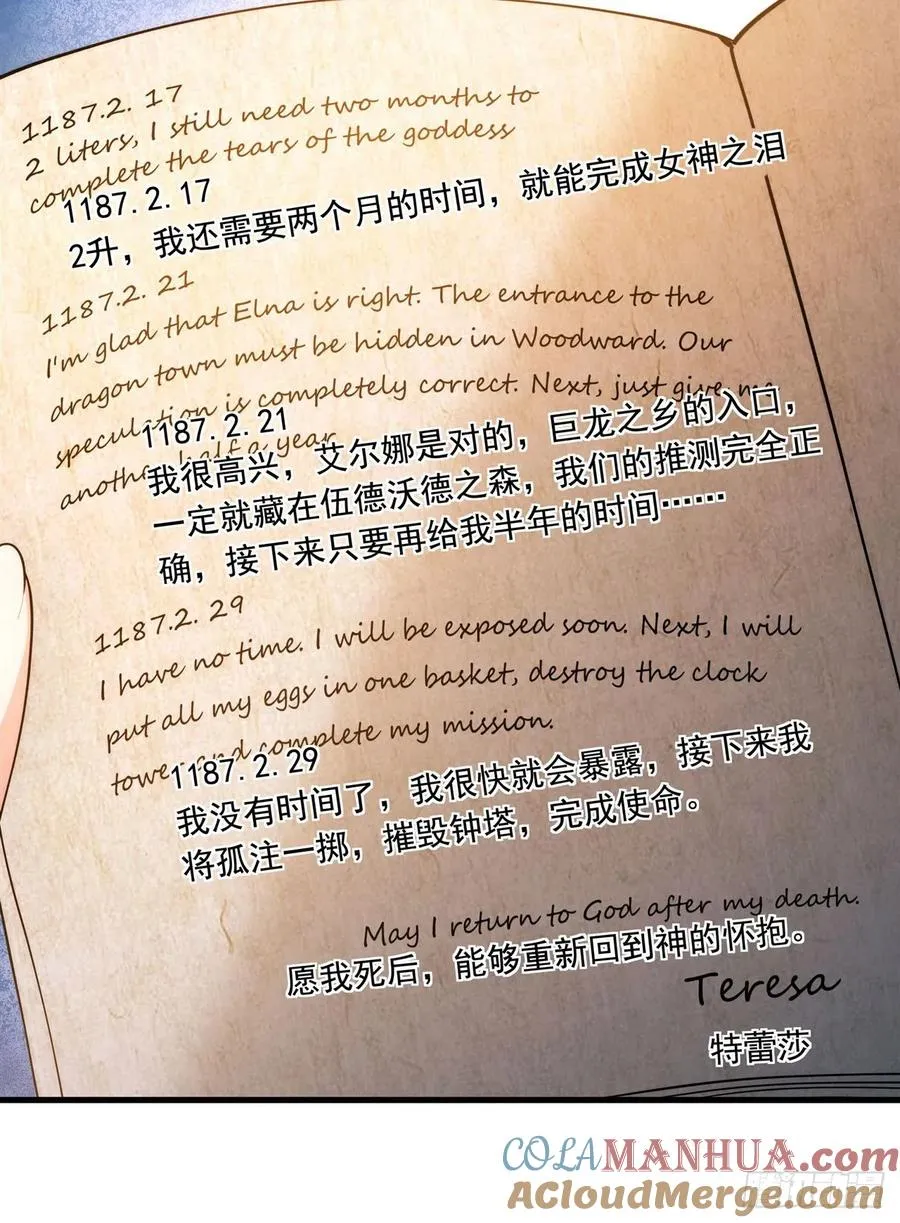 1187.2. 17
2 liters, I still need two months to
complete the tears of the goddess
1187.2.17
2升，我还需要两个月的时间，就能完成女神之泪
1187.2. 21
I'm glad that Elna is right. The entrance to the
dragon town must be hidden in Woodward. Our
speculation is completely correct. Next, just give me
another half a year
1187.2.21
我很高兴，艾尔娜是对的，巨龙之乡的入口，
一定就藏在伍德沃德之森，我们的推测完全正
确，接下来只要再给我半年的时间……
1187.2. 29
I have no time. I will be exposed soon. Next, I will
put all my eggs in one basket, destroy the clock
tower and complete my mission.
1187.2.29
我没有时间了，我很快就会暴露，接下来我
将孤注一掷，摧毁钟塔，完成使命。
May I return to God after my death.
愿我死后，能够重新回到神的怀抱。
Teresa
特蕾莎
COLAMANHUA.com
ACloudMerge.com